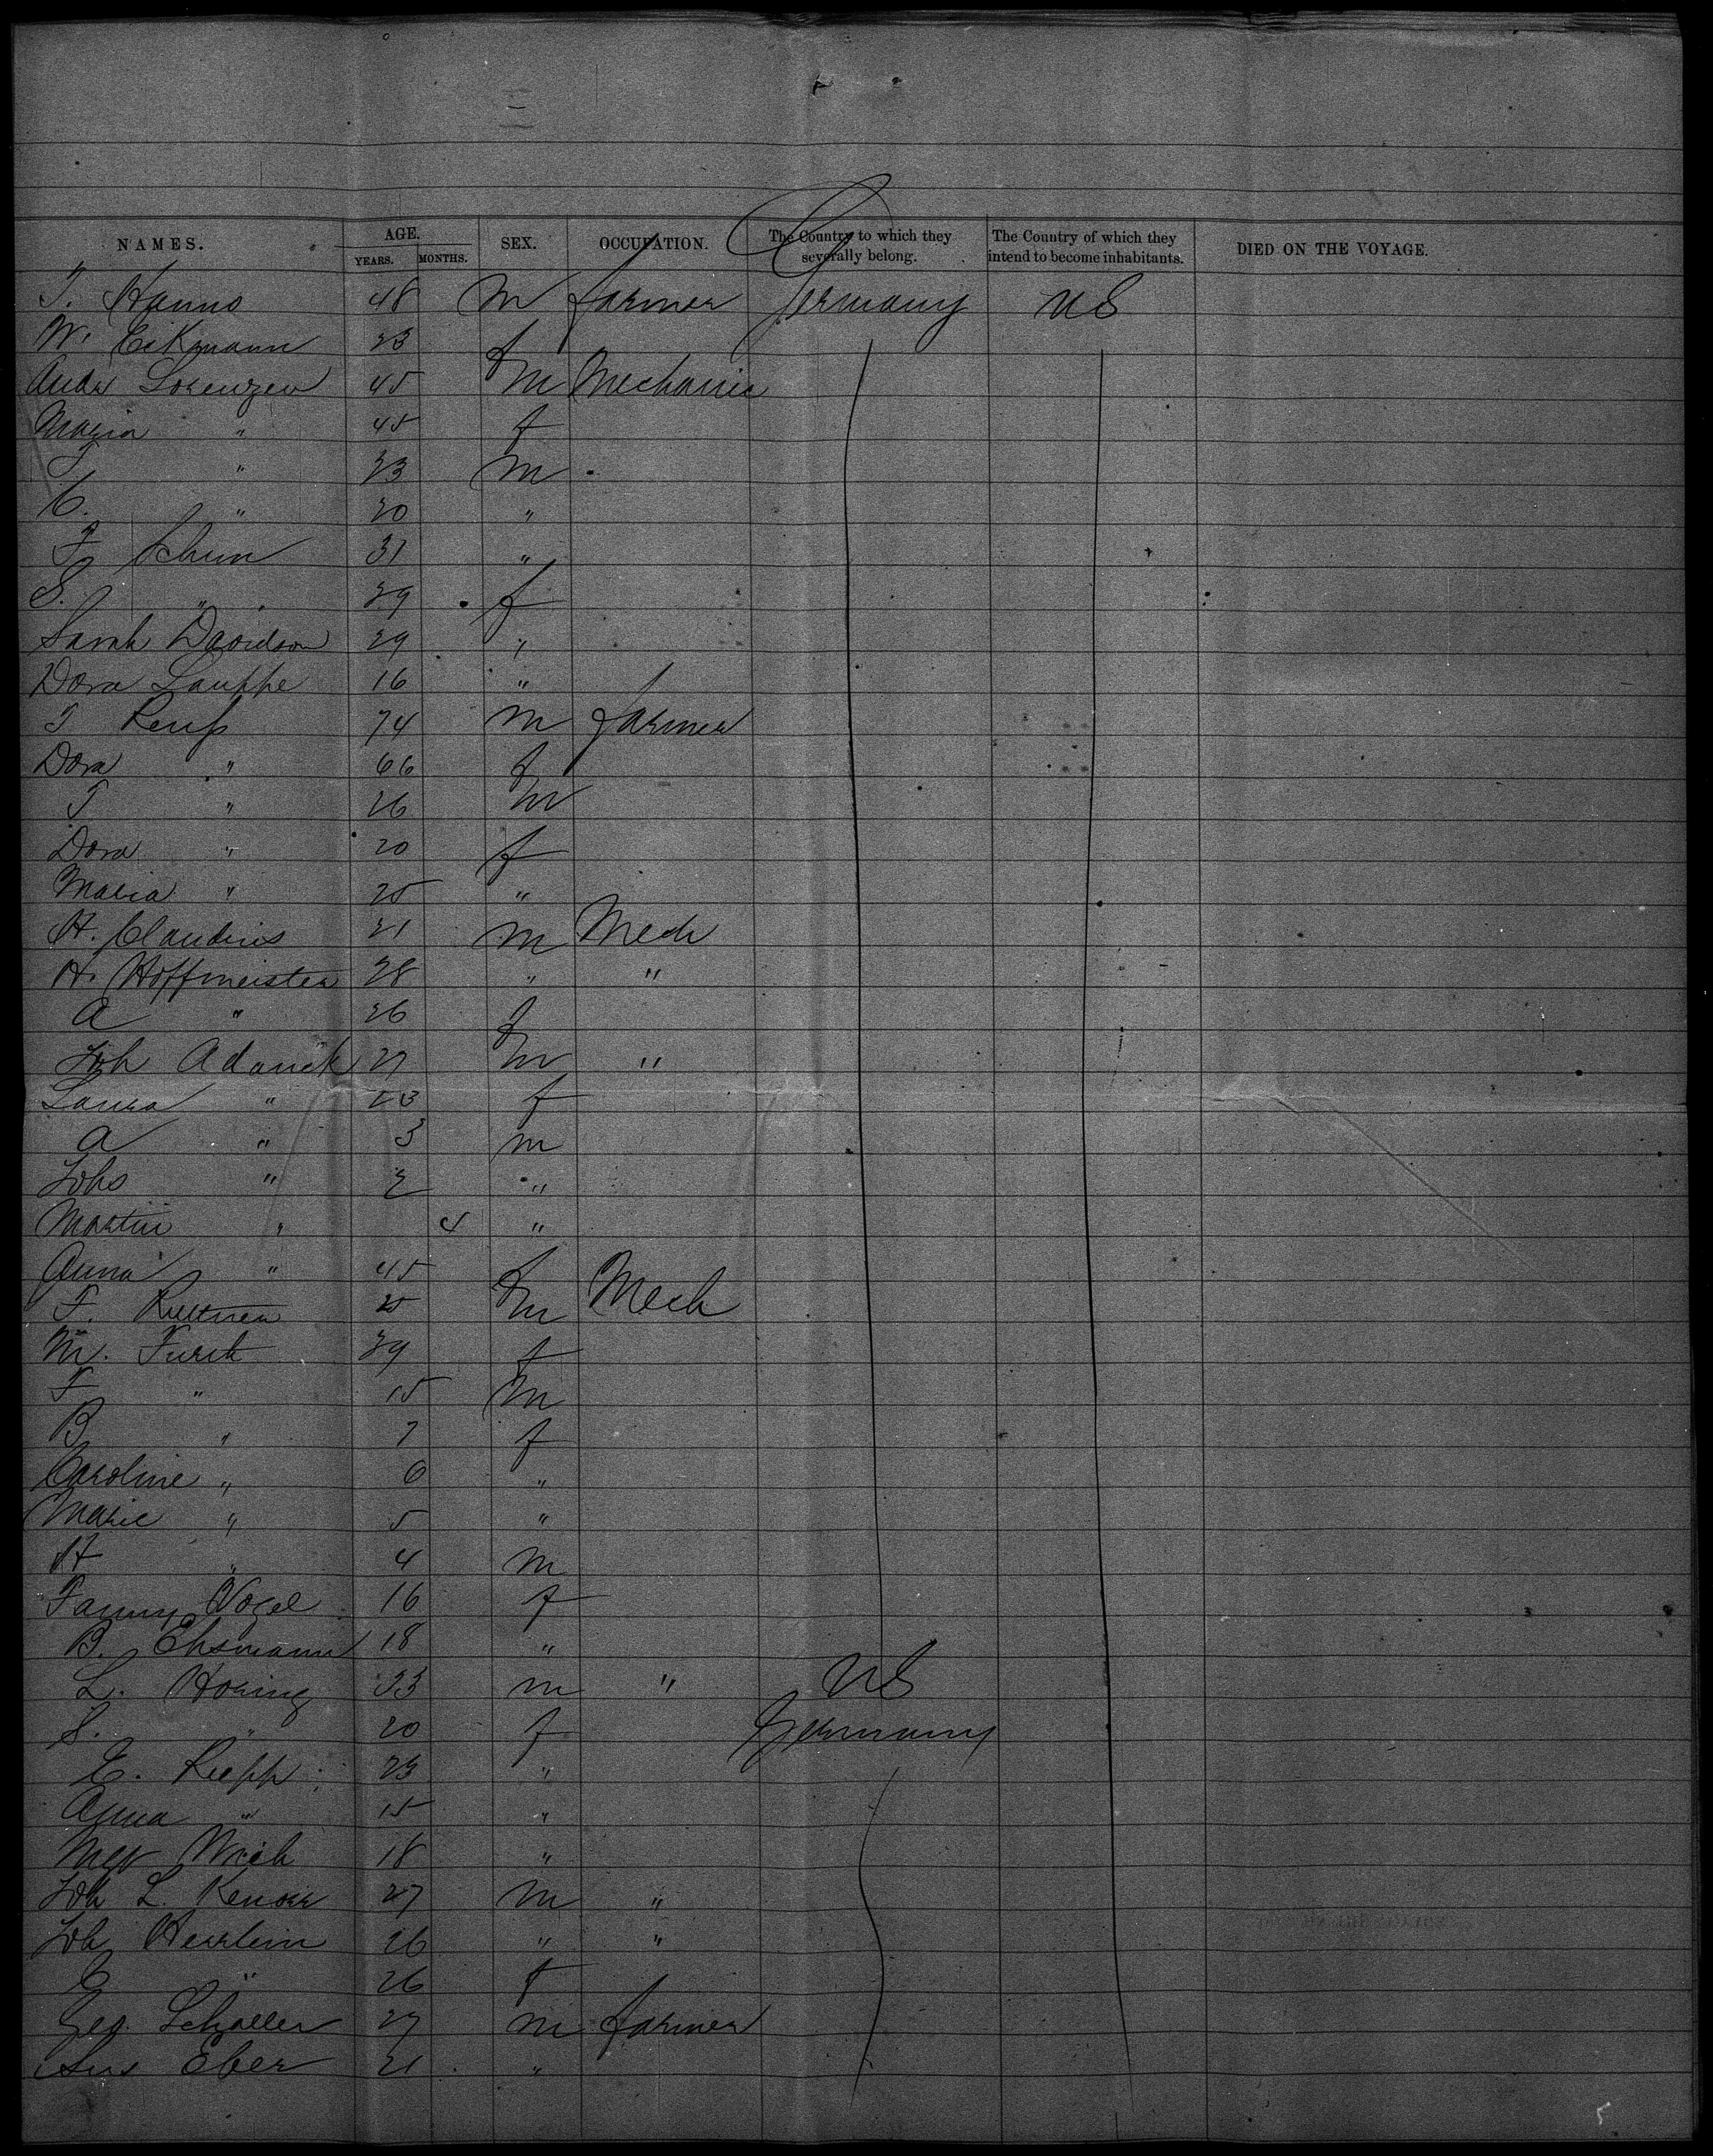 NAMES. AGE. SEX. OCCUPATION. The Country to which they severally belong. The Country of which they intend to become inhabitants. DIED ON THE VOYAGE.
YEARS. MONTHS.
T. Hanno 48 m farmer Germany US
W. Eikmann 23 f
Andr Lorenzen 45 m Mechanic
Maria " 45 f
T " 23 m
C. " 20 "
F Schum 31 "
S. " 29 f
Sarah Davidson 29 "
Dora Lauppe 16 "
T Reuß 74 m farmer
Dora " 66 f
T " 26 m
Dora " 20 f
Maria " 25 "
H. Claudius 21 m Mech
H. Hoffmeister 28 " "
A " 26 f
Joh Adanck 27 m "
Laura " 23 f
A " 3 m
Johs " 2 "
Martin " 4 "
Anna " 45 f
F. 25 m Mech
M. Furst 29 f
F " 15 m
B " 7 f
Caroline " 6 "
Marie " 5 "
H " 4 m
Fanny Vogel 16 f
B. Ehsmann 18 "
L. Horing 33 m " US
S. " 20 f Germany
E. Riepp 23 "
Anna " 15 "
18 "
Joh L. 27 m "
Joh Heurlein 26 " "
E " 26 f
Geo. Schaller 27 m farmer
Eber 21 "